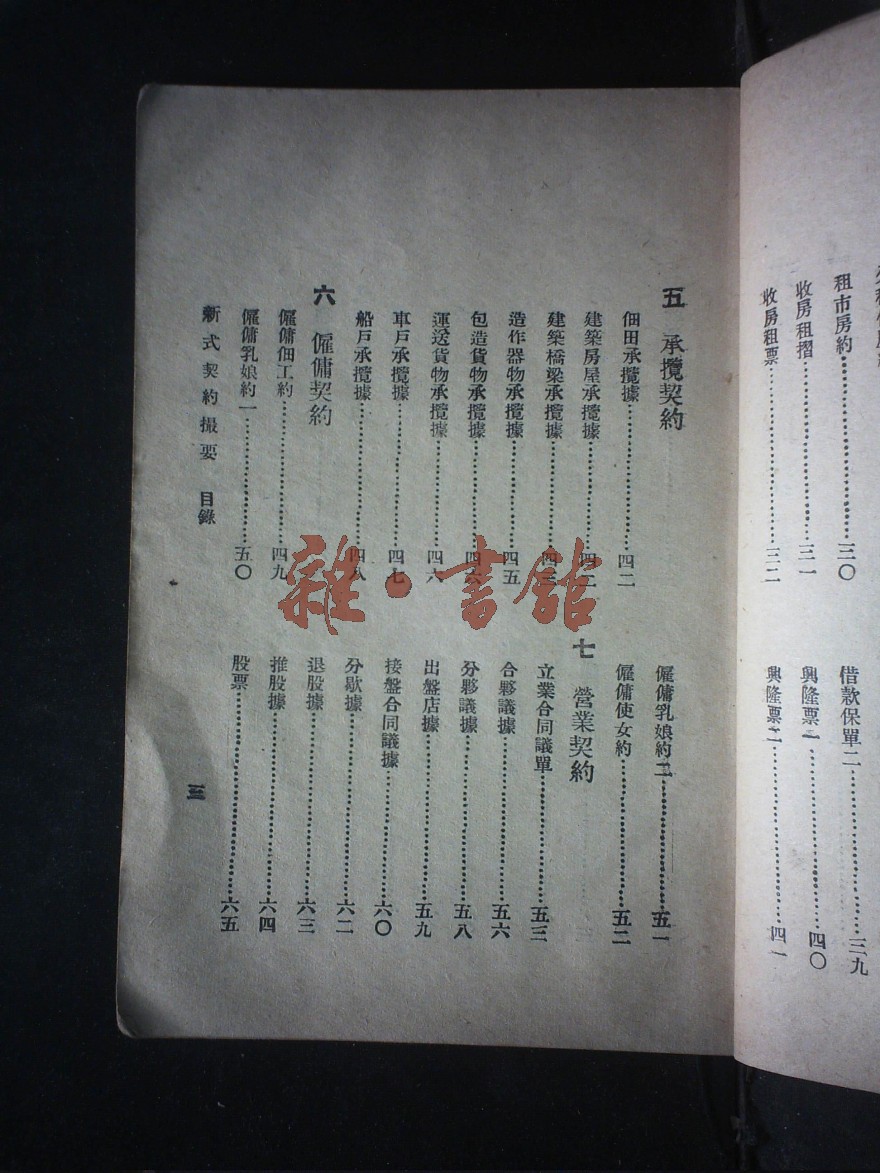 租市房約……三〇
收房租摺……三一
收房租票……三二
借款保單二……三九
興隆票一……四〇
興隆票二……四一
五 承攬契約
佃田承攬據……四二
建築房屋承攬據……四二
建築橋梁承攬據……四三
造作器物承攬據……四五
包造貨物承攬據……四六
運送貨物承攬據……四六
車戶承攬據……四七
船戶承攬據……四八
六 僱傭契約
僱傭佃工約……四九
僱傭乳娘約一……五〇
僱傭乳娘約二……五一
僱傭使女約……五二
七 營業契約
立業合同議單……五三
合夥議據……五六
分夥議據……五八
出盤店據……五九
接盤合同議據……六〇
分歇據……六二
退股據……六三
推股據……六四
股票……六五
新式契約撮要 目錄
三
雜·書館